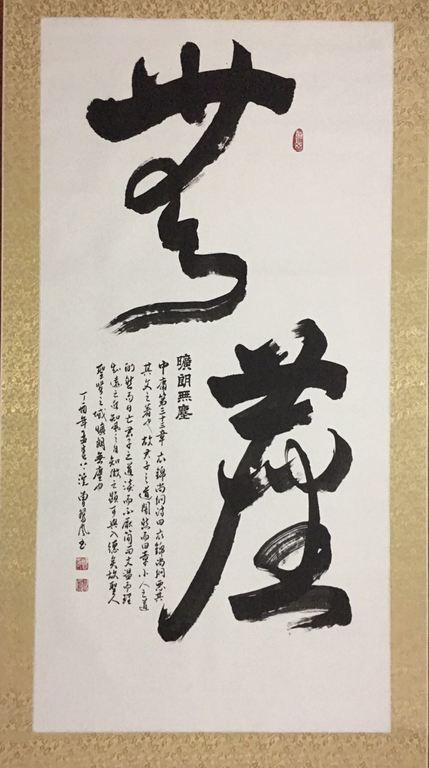 無塵
曠朗無塵
中庸第三十三章 衣錦尚絅詩曰衣錦尚絅惡其
其文之著也故君子之道闇然而日章小人之道
的然而日亡君子之道淡而不厭簡而文溫而理
知遠之近知風之自知微之顯可與入德矣故聖人
聖賢之域曠朗無塵也
丁酉年孟春 書